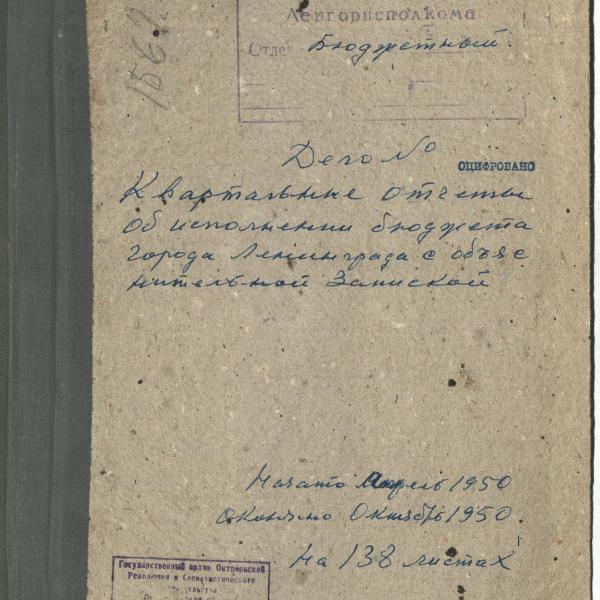 1567
Ленгорисполкома
Отдел Бюджетный
Дело №
ОЦИФРОВАНО
Квартальные отчеты
об исполнении бюджета
города Ленинграда с объяс
нительной Запиской
Начато Апрель 1950
окончено Октябрь 1950
на 138 листах
Государственный архив Октябрьской
Революции и Социалистического